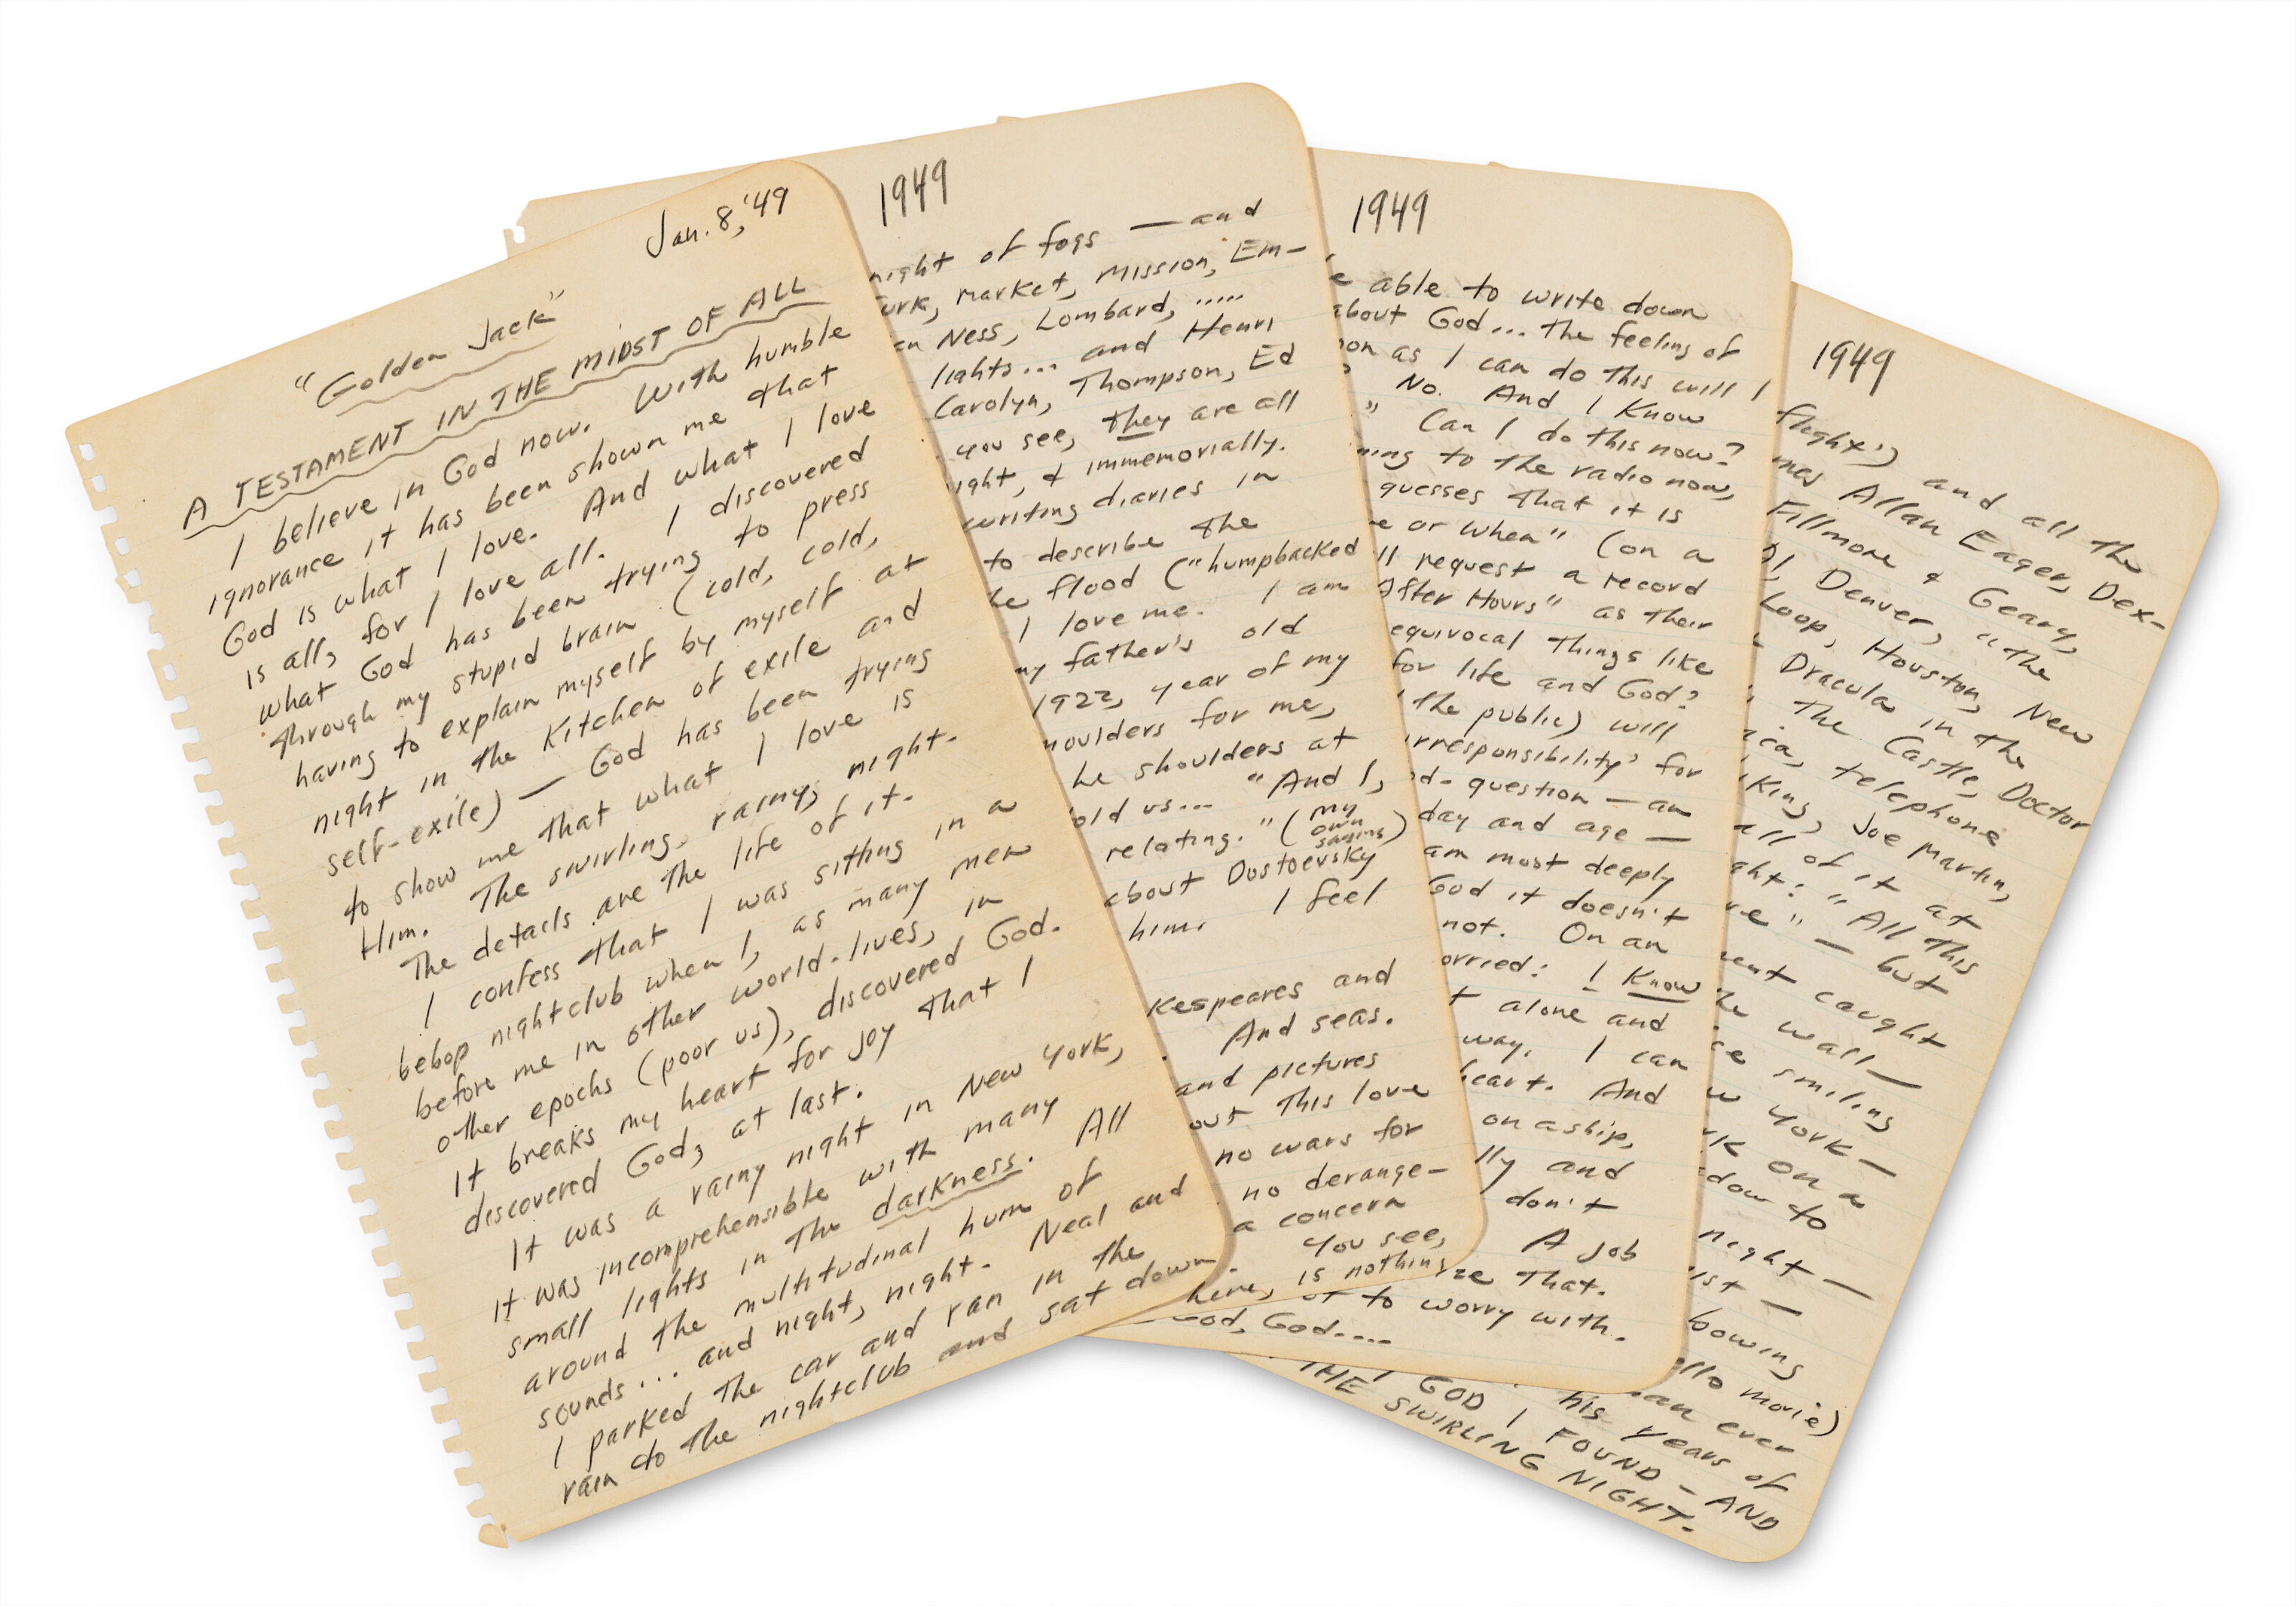 Jan. 8, '49
"Golden Jack"
A TESTAMENT IN THE MIDST OF ALL
I believe in God now. With humble
ignorance it has been shown me that
God is what I love. And what I love
is all, for I love all. I discovered
what God has been trying to press
through my stupid brain (cold, cold,
having to explain myself by myself at
night in the kitchen of exile and
self-exile) — God has been trying
to show me that what I love is
Him. The swirling, rainy, night.
The details are the life of it.
I confess that I was sitting in a
bebop nightclub when I, as many men
before me in other world-lives, in
other epochs (poor us), discovered God.
It breaks my heart for joy that I
discovered God, at last.
It was a rainy night in New York,
it was incomprehensible with many
small lights in the darkness. All
around the multitudinal hum of
sounds... and night, night. Neal and
I parked the car and ran in the
rain to the nightclub and sat down.
1949
night of fogs — and
urk, Market, Mission, Em-
an Ness, Lombard, .....
lights... and Henri
Carolyn, Thompson, Ed
you see, they are all
ight, & immemorially.
writing diaries in
to describe the
he flood ("humpbacked
I love me. I am
my father's old
1922, year of my
houlders for me,
he shoulders at
old us... "And I,
relating." (my own saying)
about Dostoevsky
him. I feel
kespeares and
And seas.
and pictures
out this love
no wars for
no derange-
a concern
You see,
here, is nothing
1949
e able to write down
about God... the feeling of
on as I can do this will I
No. And I know
" Can I do this now?
ning to the radio now,
guesses that it is
e or When" (on a
ll request a record
After Hours" as their
equivocal things like
for life and God?
the public) will
irresponsibility' for
d-question — an
day and age —
am most deeply
God it doesn't
not. On an
orried: I know
t alone and
way. I can
heart. And
on a ship,
lly and
don't
A job
ze that.
to worry with.
God, God....
1949
flight') and all the
mes Allan Eager, Dex-
Fillmore & Geary,
Ol, Denver, "the
Loop, Houston, New
Dracula in the
The Castle, Doctor
ica, telephone
King, Joe Martin,
all of it at
ght: "All This
ve" — but
ent caught
the wall —
se smiling
w York —
rk on a
dow to
night —
ist —
bowing
ello movie)
man ever
his years of
GOD I FOUND — AND
THE SWIRLING NIGHT.